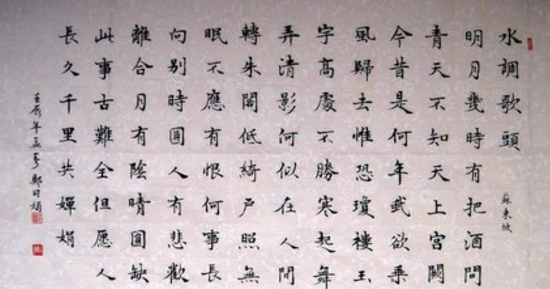 水調歌頭
蘇東坡
明月幾時有把酒問
青天不知天上宮闕
今昔是何年武欲乘
風歸去惟恐瓊樓玉
宇高處不勝寒起舞
弄清影何似在人間
轉朱閣低綺戶照無
眠不應有恨何事長
向別時圓人有悲歡
離合月有陰晴圓缺
此事古難全但愿人
長久千里共嬋娟
壬辰年孟夏鄭娟